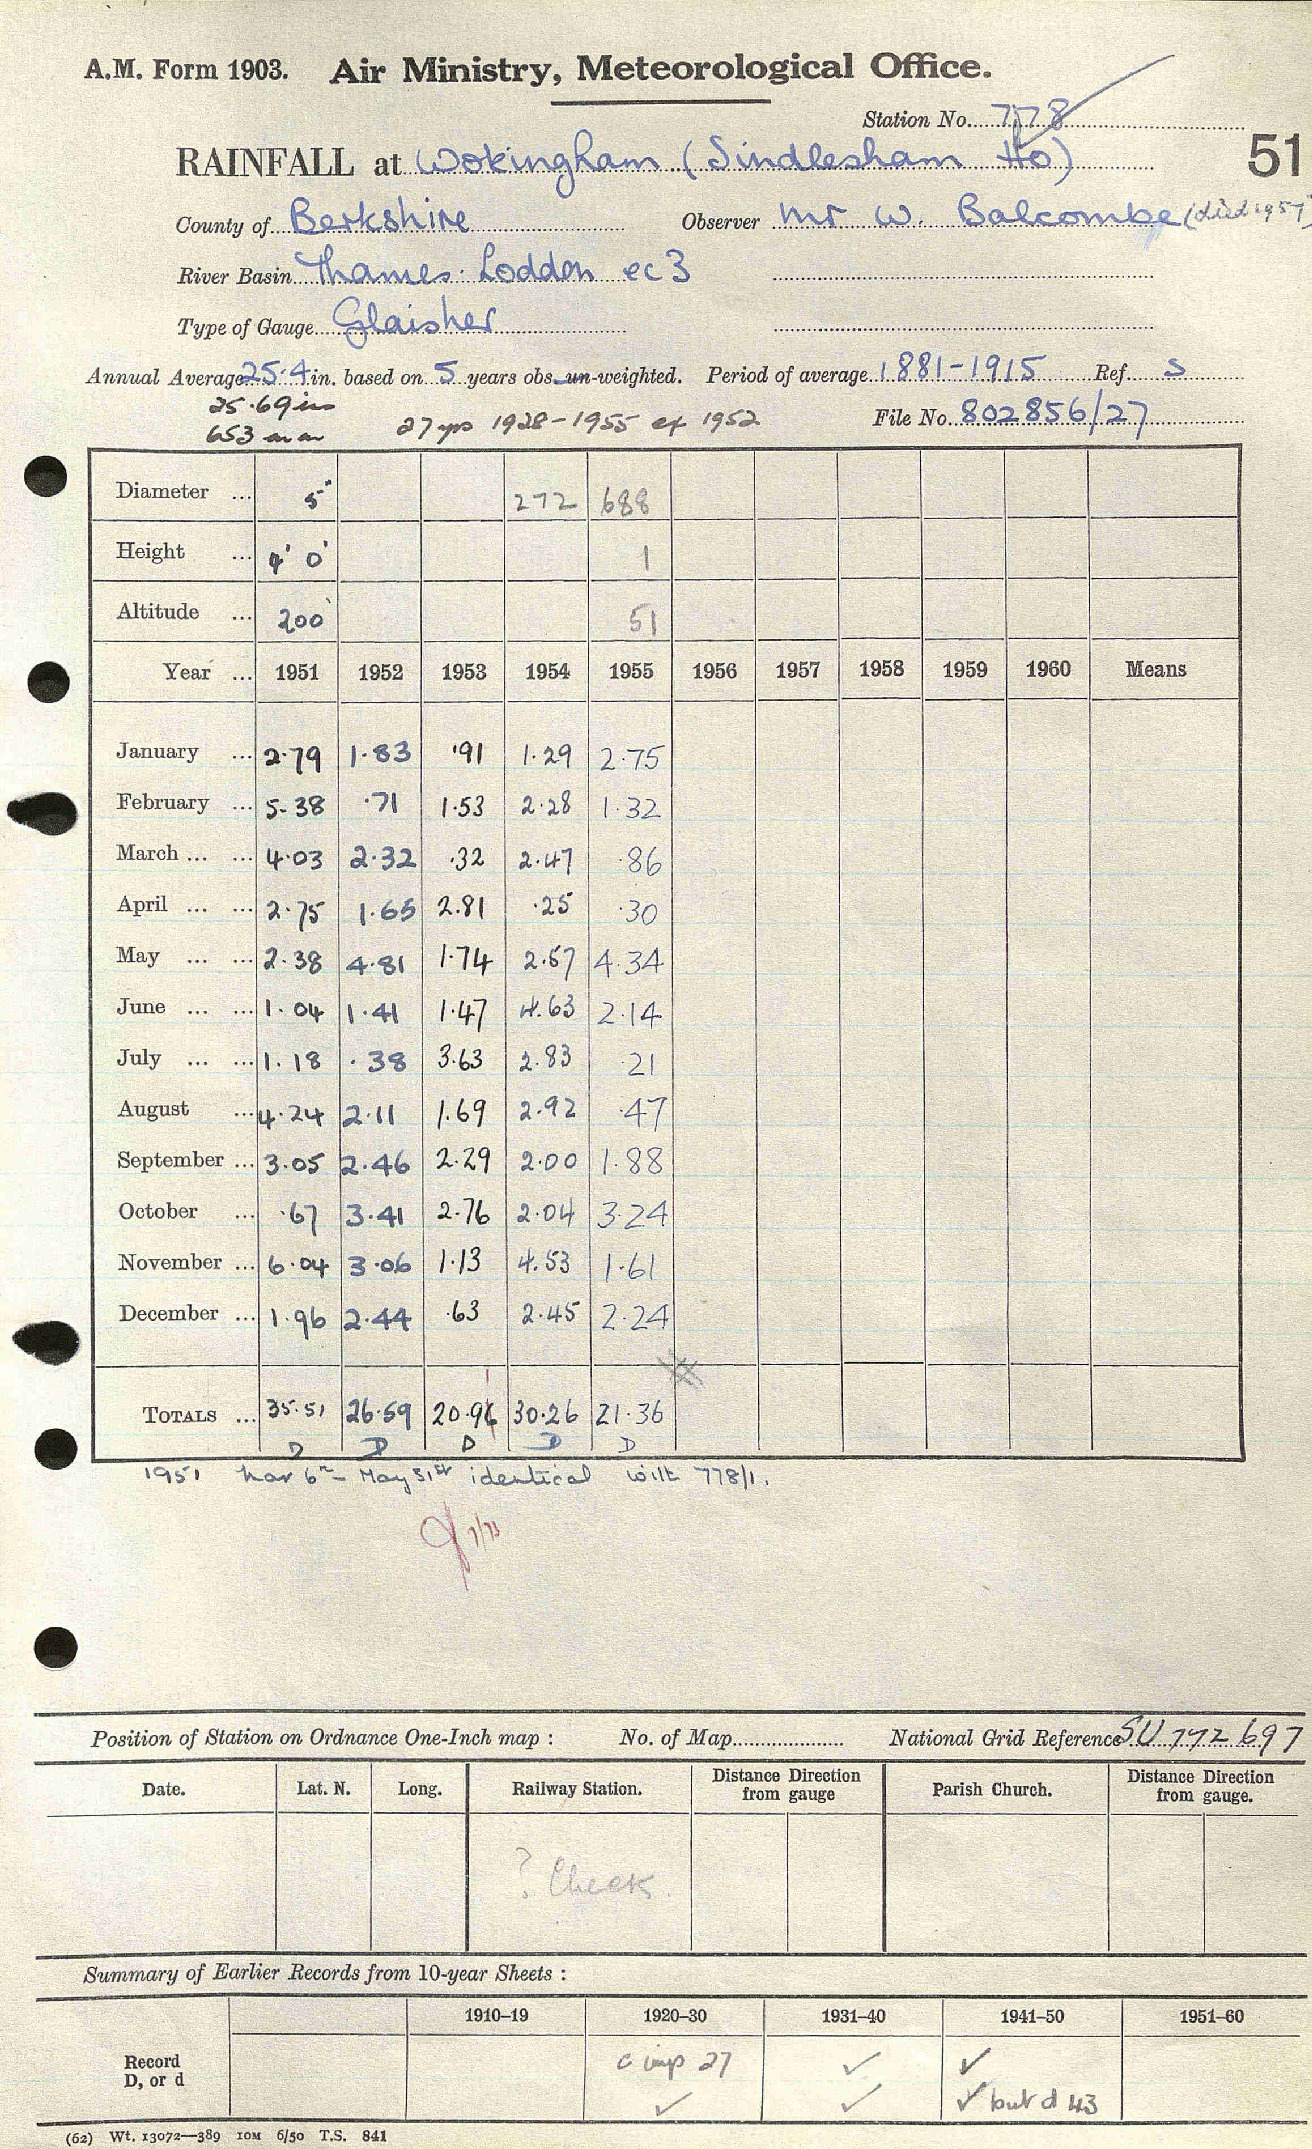 A.M. Form 1903. Air Ministry, Meteorological Office.
Station No. 778
51
RAINFALL at Wokingham (Sindlesham Ho)
County of Berkshire Observer Mr W. Balcombe (died 1957)
River Basin Thames: Loddon ec3
Type of Gauge Glaisher
Annual Average 25.4 in. based on 5 years obs. un-weighted. Period of average 1881-1915 Ref. S
25.69 ins
653 mm 27 yrs 1928-1955 ex 1952 File No. 802856/27
Diameter ... 5" 272 688
Height ... 4' 0" 1
Altitude ... 200' 51
Year ... 1951 1952 1953 1954 1955 1956 1957 1958 1959 1960 Means
January ... 2.79 1.83 .91 1.29 2.75
February ... 5.38 .71 1.53 2.28 1.32
March ... ... 4.03 2.32 .32 2.47 .86
April ... ... 2.75 1.65 2.81 .25 .30
May ... ... 2.38 4.81 1.74 2.57 4.34
June ... ... 1.04 1.41 1.47 4.63 2.14
July ... ... 1.18 .38 3.63 2.83 .21
August ... 4.24 2.11 1.69 2.92 .47
September ... 3.05 2.46 2.29 2.00 1.88
October ... .67 3.41 2.76 2.04 3.24
November ... 6.04 3.06 1.13 4.53 1.61
December ... 1.96 2.44 .63 2.45 2.24
TOTALS ... 35.51 26.59 20.91 30.26 21.36
D D D D D
1951 Mar 6th - May 31st identical with 778/1.
7/73
Position of Station on Ordnance One-Inch map : No. of Map National Grid Reference SU 772 697
Date. Lat. N. Long. Railway Station. Distance Direction from gauge Parish Church. Distance Direction from gauge.
? Check
Summary of Earlier Records from 10-year Sheets :
1910–19 1920–30 1931–40 1941–50 1951–60
Record D, or d
c imp 27 ✓ ✓
✓ ✓ ✓ but d 43
(62) Wt. 13072—389 10M 6/50 T.S. 841